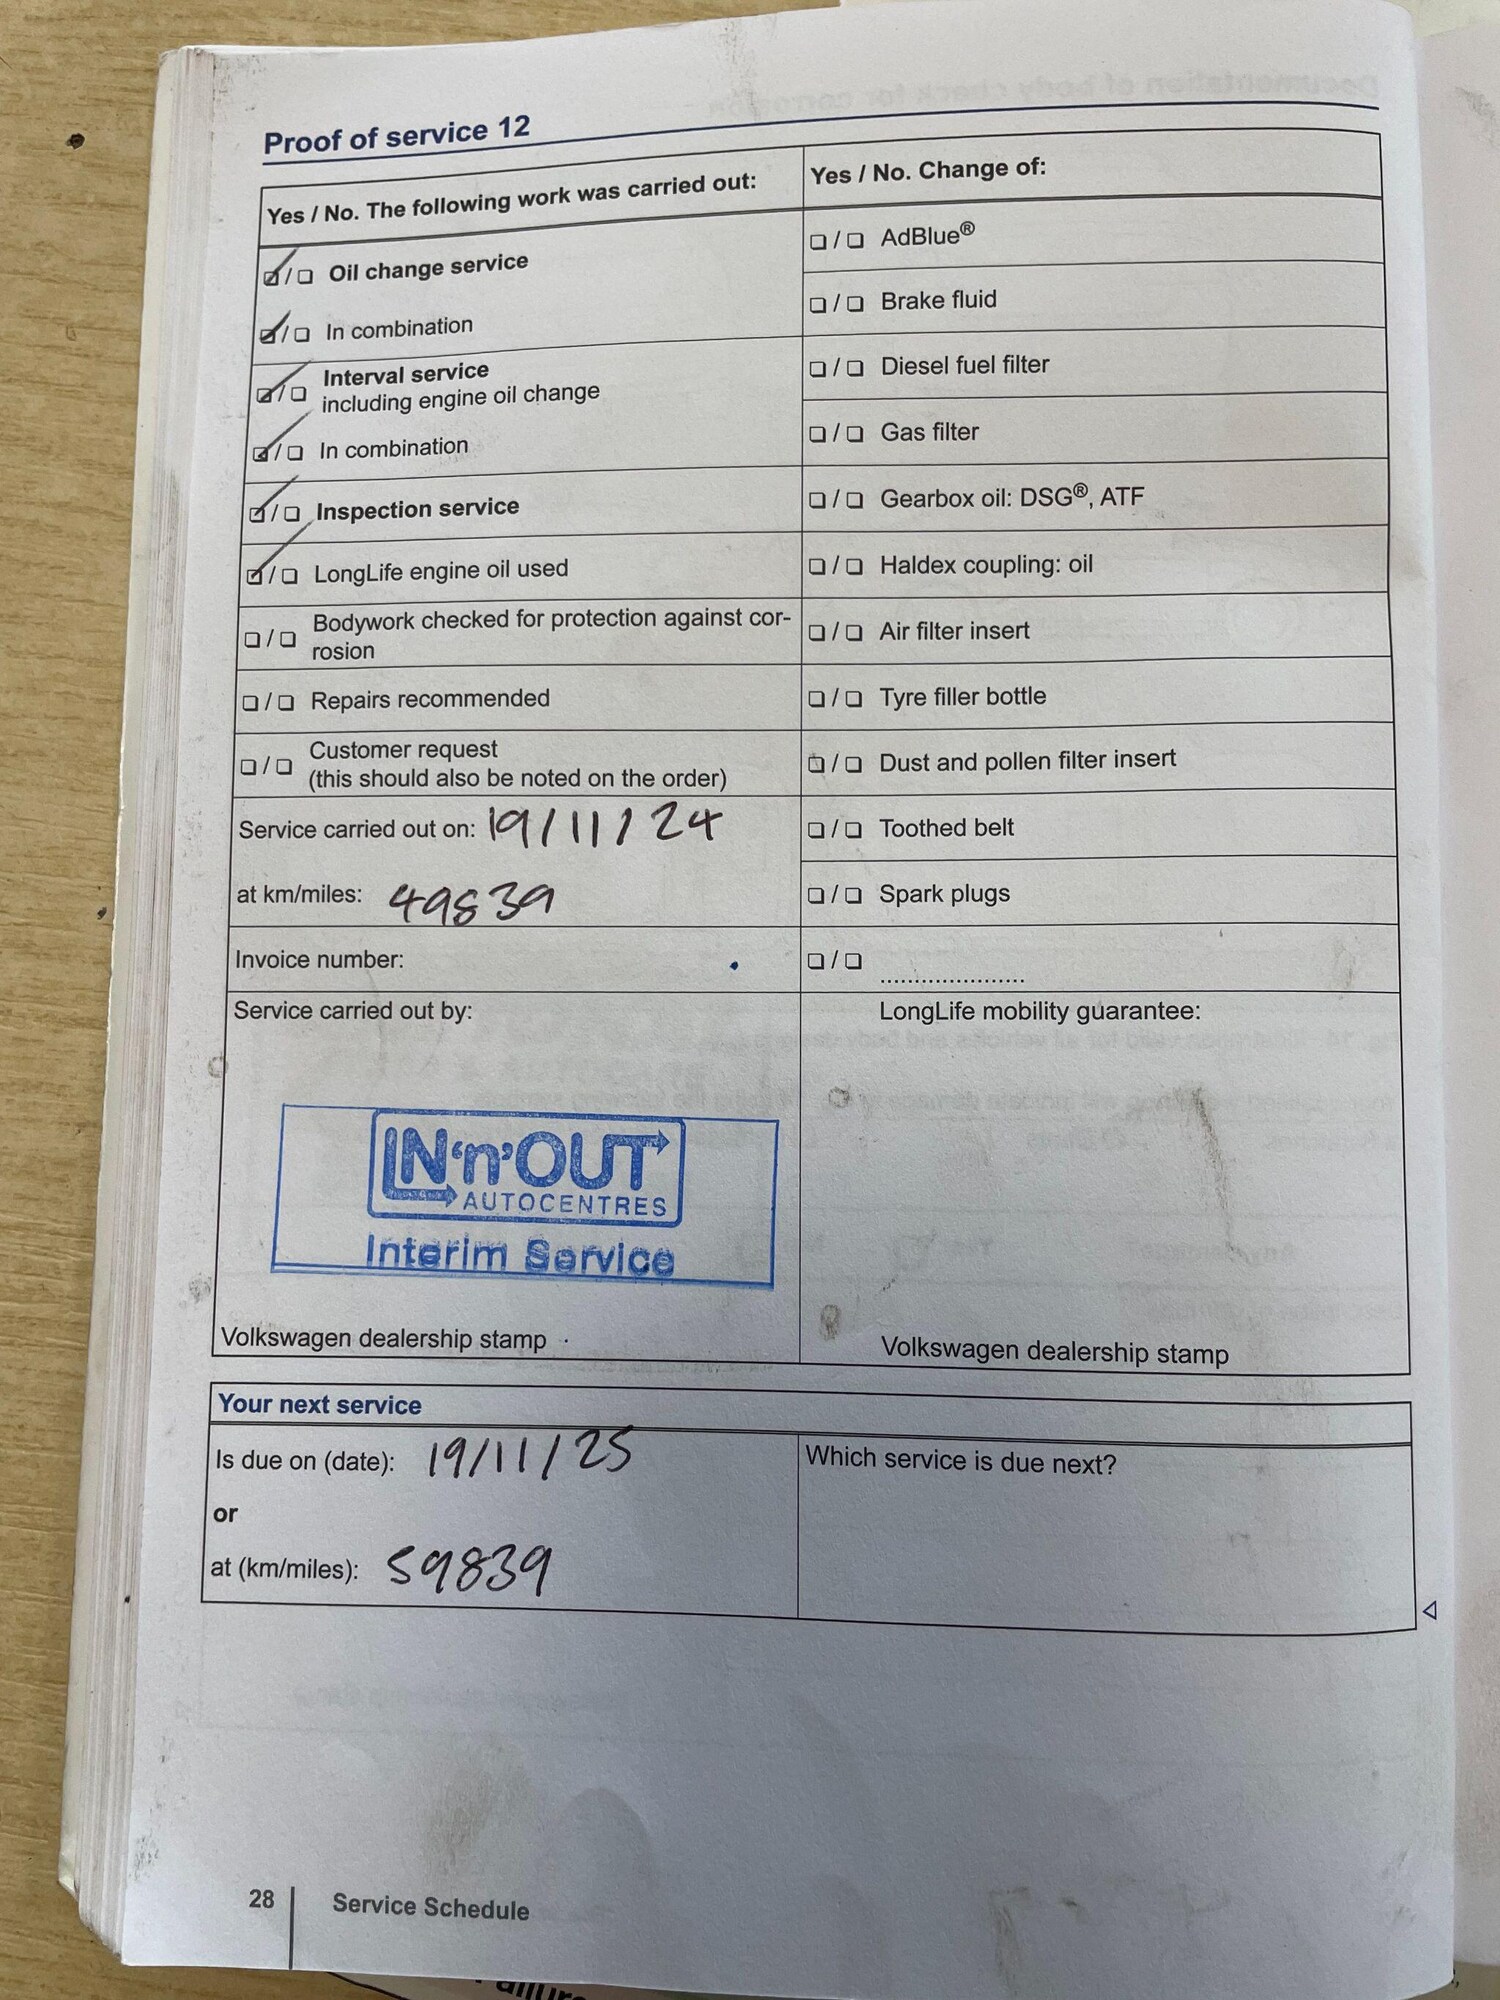 Proof of service 12
Yes / No. The following work was carried out:
☑/☐ Oil change service
☑/☐ In combination
☑/☐ Interval service
including engine oil change
☑/☐ In combination
☑/☐ Inspection service
☑/☐ LongLife engine oil used
☐/☐ Bodywork checked for protection against cor-
rosion
☐/☐ Repairs recommended
☐/☐ Customer request
(this should also be noted on the order)
Service carried out on: 19/11/24
at km/miles: 49839
Invoice number:
Service carried out by:
IN'n'OUT
AUTOCENTRES
Interim Service
Volkswagen dealership stamp
Yes / No. Change of:
☐/☐ AdBlue®
☐/☐ Brake fluid
☐/☐ Diesel fuel filter
☐/☐ Gas filter
☐/☐ Gearbox oil: DSG®, ATF
☐/☐ Haldex coupling: oil
☐/☐ Air filter insert
☐/☐ Tyre filler bottle
☐/☐ Dust and pollen filter insert
☐/☐ Toothed belt
☐/☐ Spark plugs
☐/☐ .....................
LongLife mobility guarantee:
Volkswagen dealership stamp
Your next service
Is due on (date): 19/11/25
or
at (km/miles): 59839
Which service is due next?
28
Service Schedule